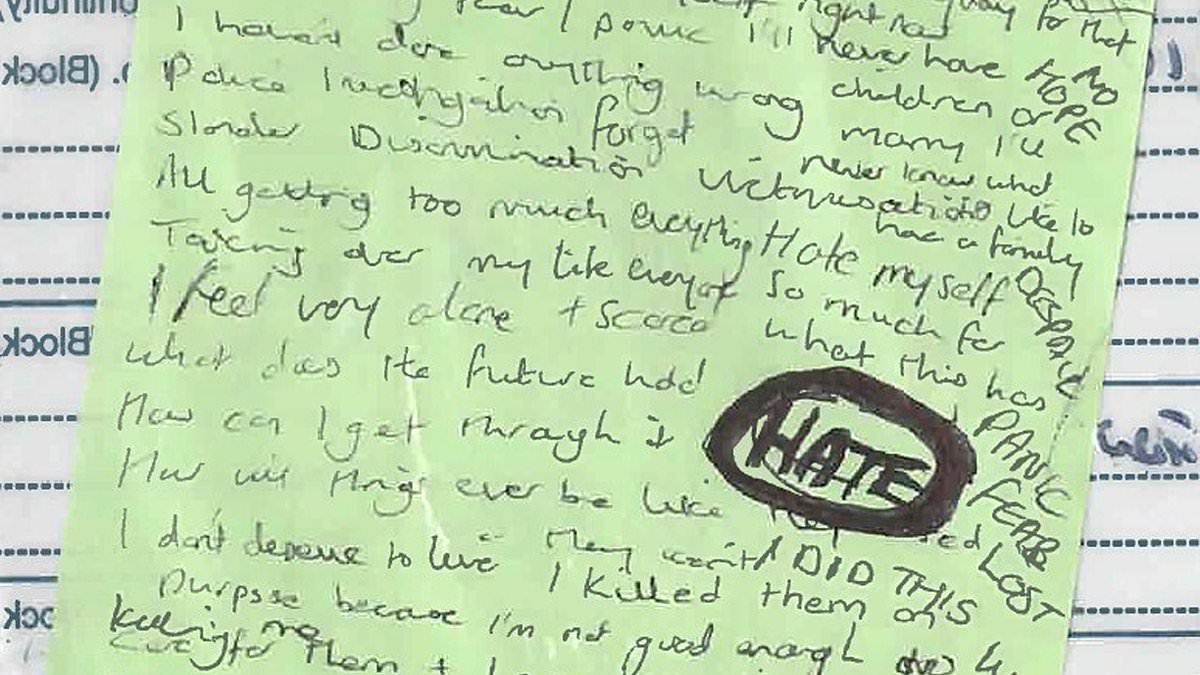 right now
for that
fear I panic I'll never have
NO HOPE
I haven't done anything wrong
children or
marry I'll
Police Investigation forget
never know what
its like to
have a family
Slander Discrimination Victimisation
All getting too much everything
Hate myself
so much for
what this has
DESPAIR
Taking over my life everyday
I feel very alone + scared
What does the future hold
PANIC
FEAR
LOST
How can I get through it
HATE
How will things ever be like
I don't deserve to live
They won't
I DID THIS
I killed them on
purpose because I'm not good enough
Killing me
for them + I
(Block
Block